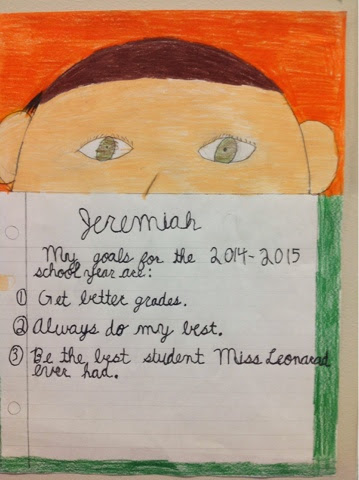 Jeremiah
My goals for the 2014-2015
school year are:
① Get better grades.
② Always do my best.
③ Be the best student Miss Leonarad
ever had.